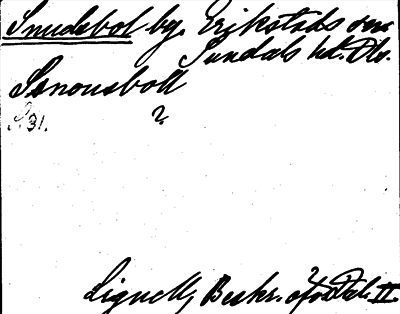 Snudebol by. Erikstads sn
Sundals hd. Ält.
Ssnousboll
S. 31. ?
Lignell, Beskr. öfver Dal. II.